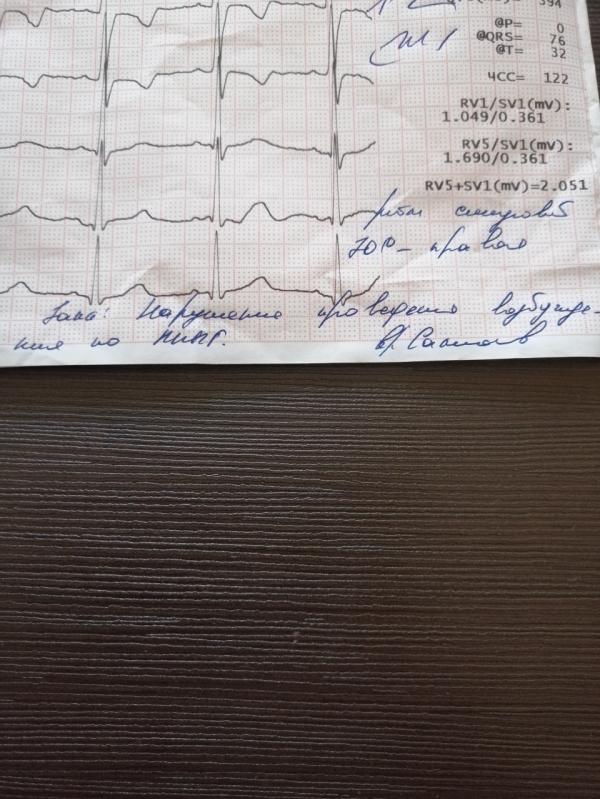 394
@P= 0
@QRS= 76
@T= 32
ЧСС= 122
RV1/SV1(mV):
1.049/0.361
RV5/SV1(mV):
1.690/0.361
RV5+SV1(mV)=2.051
ритм синусовый
ЭОС- правая
Закл: Нарушение проведения возбужде-
ния по ПНПГ.